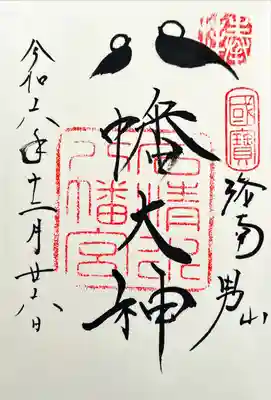 奉拝
國寶
洛南 男山
八幡大神
石清水
八幡宮
令和六年十二月廿六日